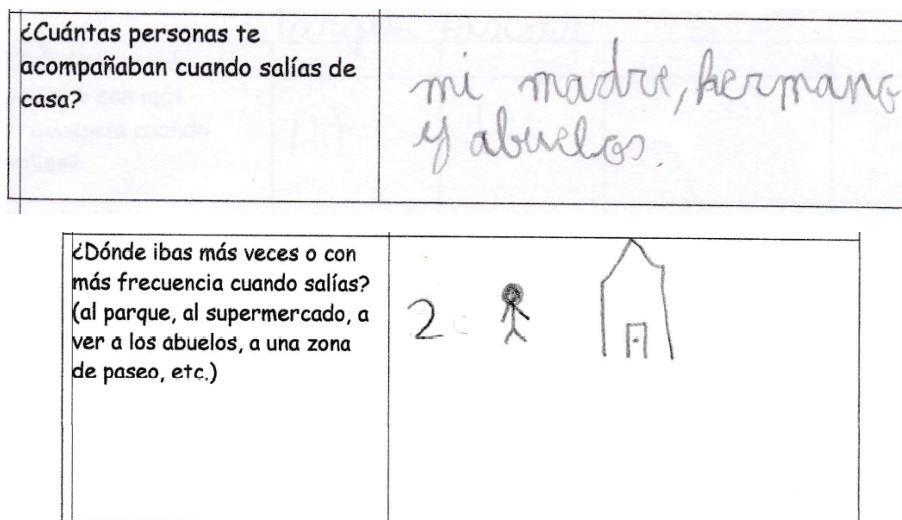 ¿Cuántas personas te
acompañaban cuando salías de
casa?
mi madre, hermano
y abuelos.
¿Dónde ibas más veces o con
más frecuencia cuando salías?
(al parque, al supermercado, a
ver a los abuelos, a una zona
de paseo, etc.)
2